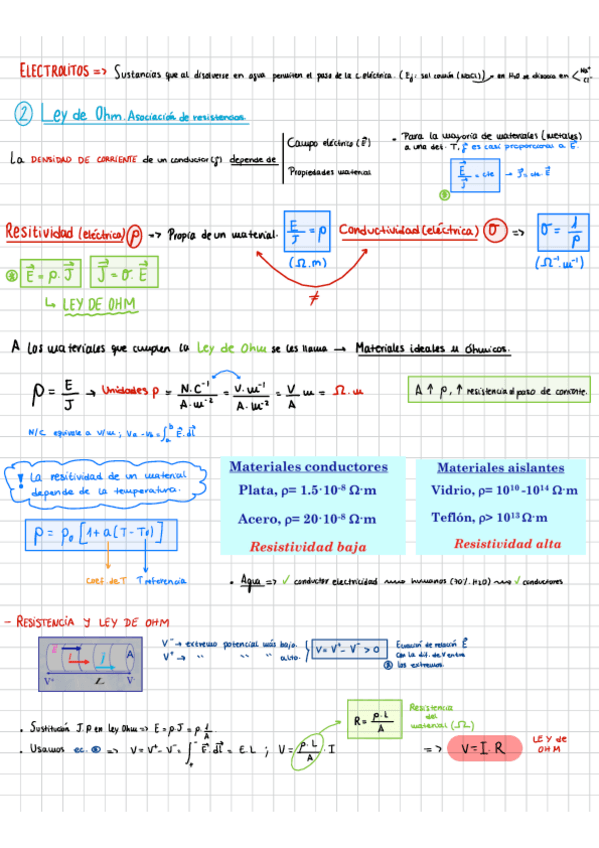 ELECTROLITOS => Sustancias que al disolverse en agua permiten el paso de la c. eléctrica. (Ej: sal común (NaCl)) → en H2O se disocia en < Na+ Cl-
② Ley de Ohm. Asociación de resistencias.
La DENSIDAD DE CORRIENTE de un conductor (J) depende de
Campo eléctrico (E⃗)
Propiedades material
- Para la mayoría de materiales (metales) a una det. T, J es casi proporcional a E⃗.
E⃗/J⃗ = cte → J⃗ = cte. E⃗
Resitividad (eléctrica) ρ => Propia de un material. E/J = ρ (Ω.m)
Conductividad (eléctrica) σ => σ = 1/ρ (Ω⁻¹.m⁻¹)
≠
E⃗ = ρ.J⃗ J⃗ = σ.E⃗
↳ LEY DE OHM
A los materiales que cumplen la Ley de Ohm se les llama → Materiales ideales u óhmicos.
ρ = E/J → Unidades ρ = N.C⁻¹/A.m⁻² = V.m⁻¹/A.m⁻² = V/A m = Ω.m
A ↑ ρ, ↑ resistencia al paso de corriente.
N/C equivale a V/m ; Va - Vb = ∫ₐᵇ E⃗.dl⃗
! La resitividad de un material
depende de la temperatura.
ρ = ρ₀ [1 + a (T - T₀)]
coef. de T
T referencia
Materiales conductores
Plata, ρ= 1.5·10⁻⁸ Ω·m
Acero, ρ= 20·10⁻⁸ Ω·m
Resistividad baja
Materiales aislantes
Vidrio, ρ= 10¹⁰ -10¹⁴ Ω·m
Teflón, ρ> 10¹³ Ω·m
Resistividad alta
• Agua => ✓ conductor electricidad humanos (70% H2O) ✓ conductores
- RESISTENCIA Y LEY DE OHM
E I J A
V⁺ L V⁻
V⁻ → extremo potencial más bajo.
V⁺ → " " " alto.
V = V⁺ - V⁻ > 0
Ecuación de relación E⃗
con la dif. de V entre
los extremos.
• Sustitución J, ρ en Ley Ohm => E = ρ.J = ρ. I/A
R = ρ.L/A
Resistencia
del
material (Ω)
• Usamos ec. => V = V⁺ - V⁻ = ∫ E⃗.dl⃗ = E.L ; V = ρ.L/A . I
=> V = I.R
LEY de
OHM